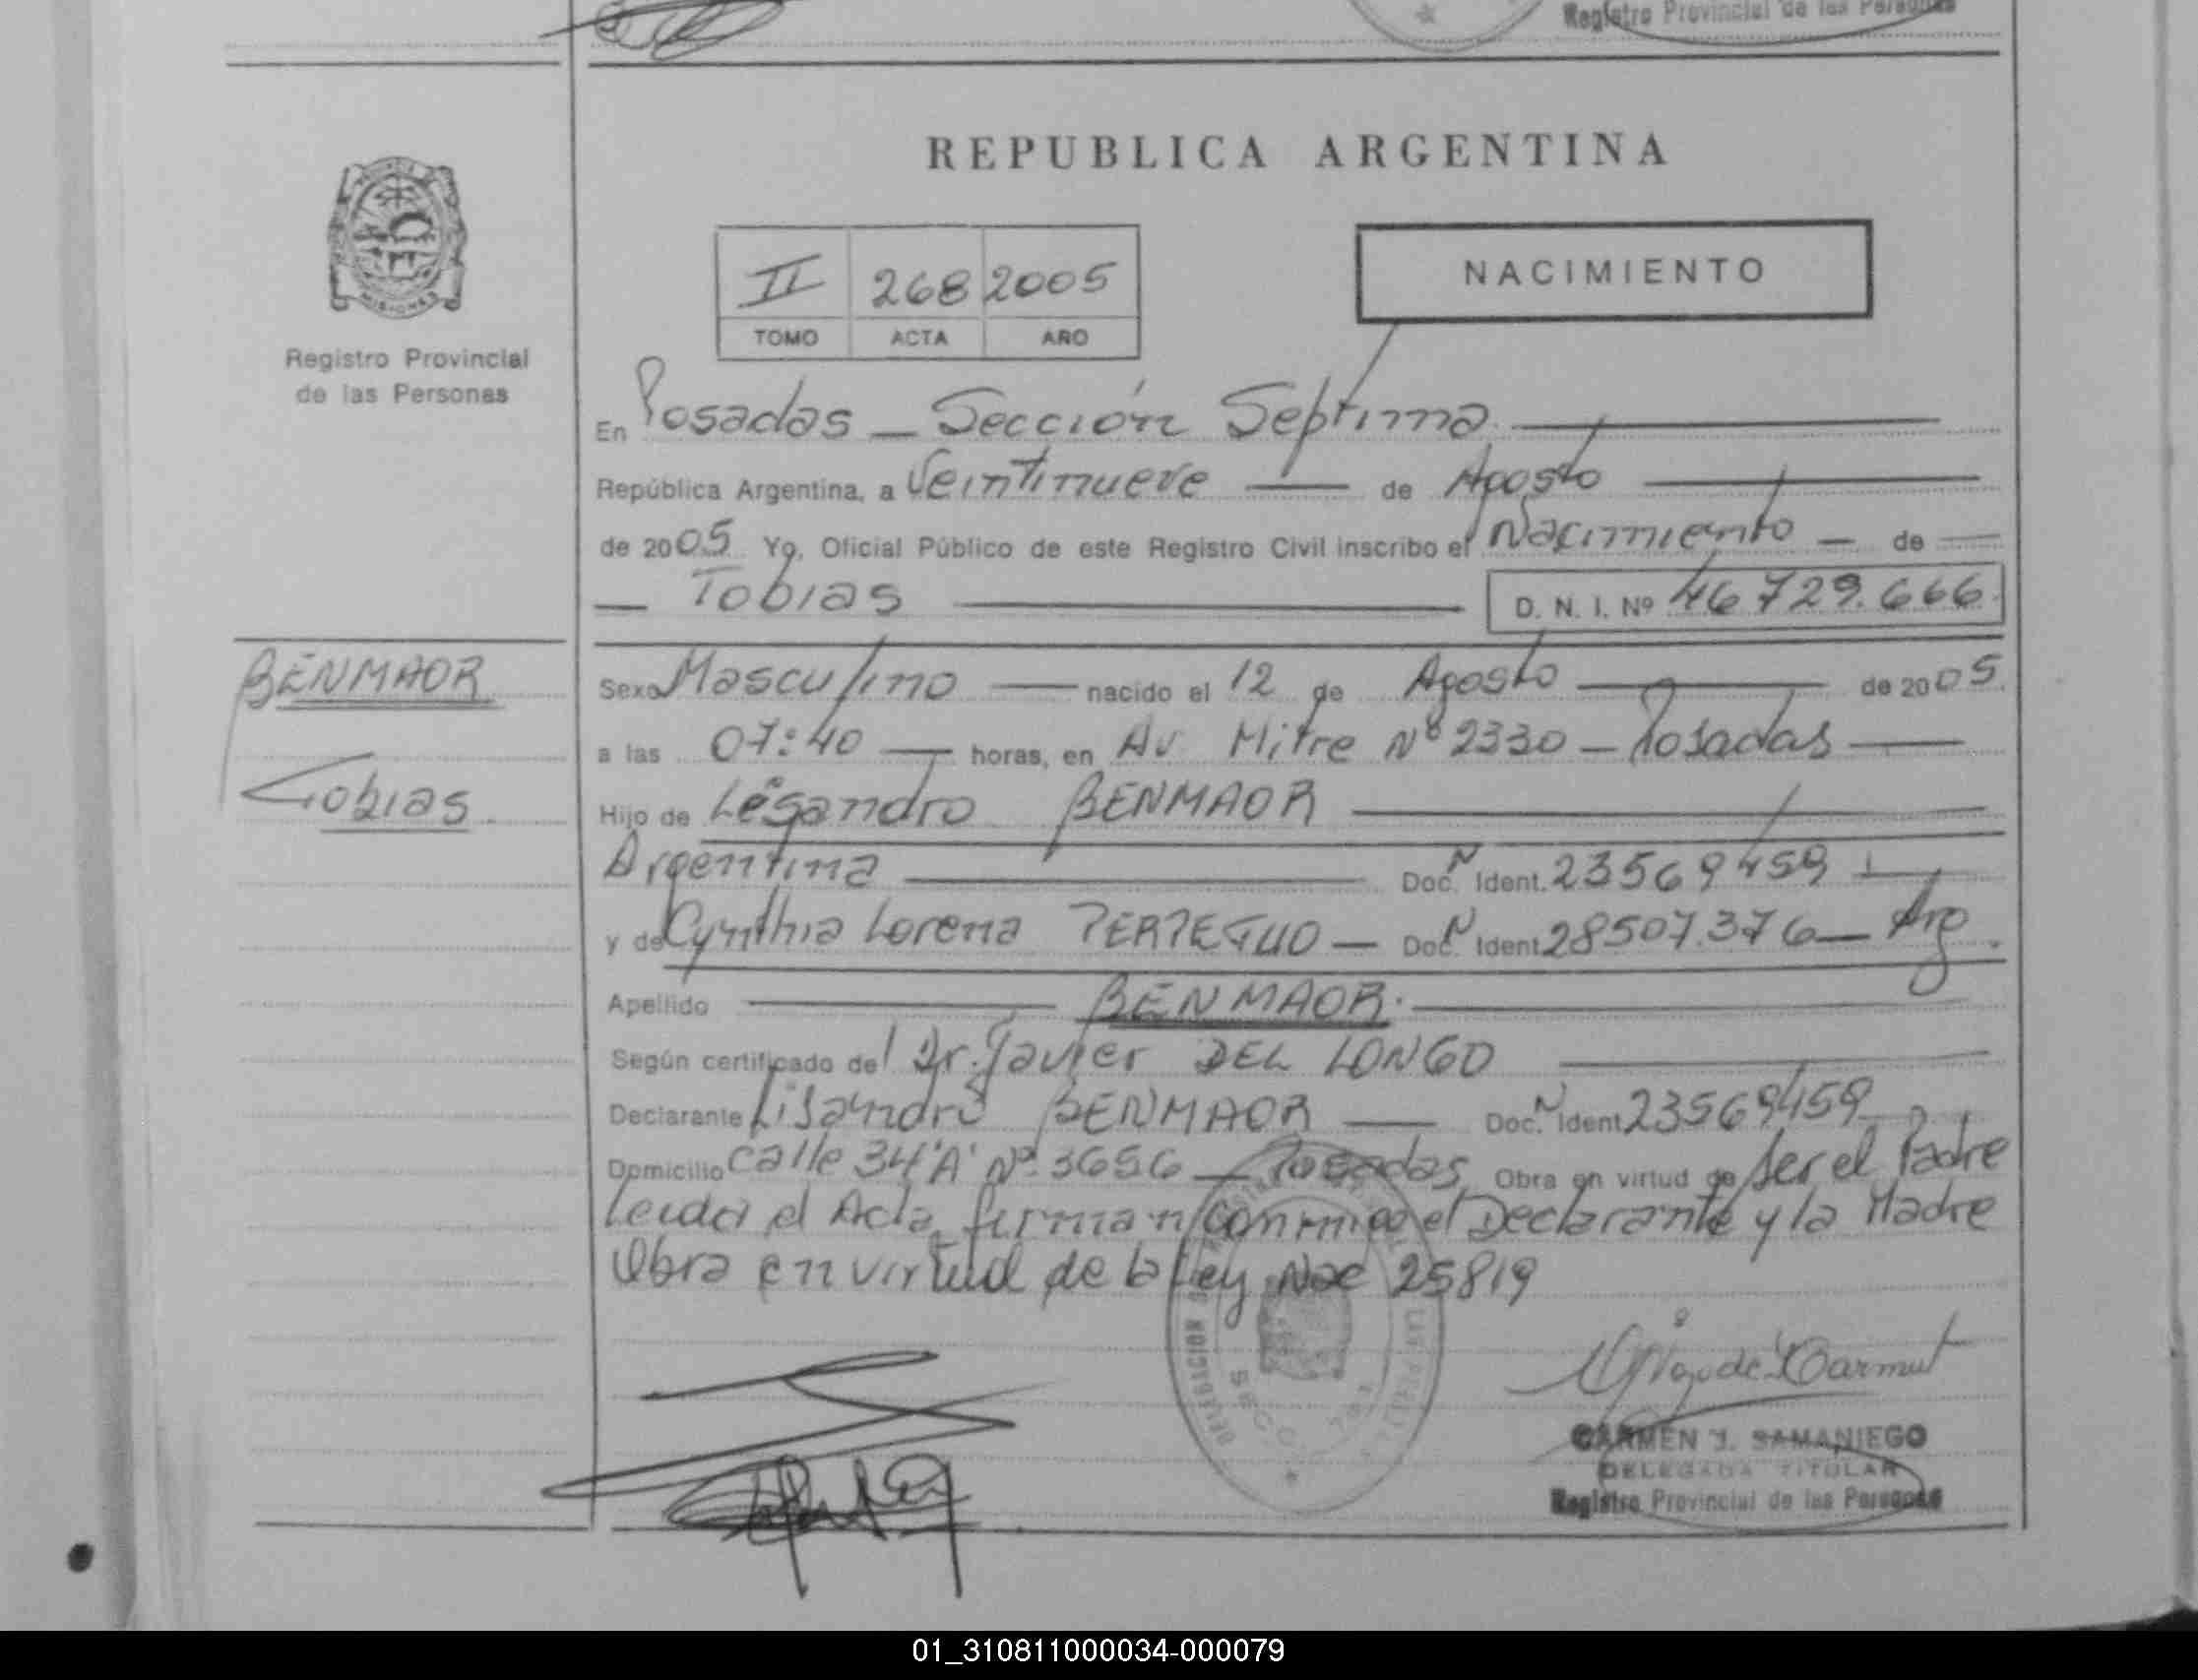 Registro Provincial de las Personas
REPUBLICA ARGENTINA
MISIONES
Registro Provincial
de las Personas
II 268 2005
TOMO ACTA AÑO
NACIMIENTO
En Posadas - Sección Septima
República Argentina, a Veintinueve de Agosto
de 2005 Yo, Oficial Público de este Registro Civil inscribo el Nacimiento - de
Tobias D. N. I. Nº 46729.666
BENMAOR
Tobias.
Sexo Masculino nacido el 12 de Agosto de 2005
a las 07:40 horas, en Av. Mitre Nº 2330 - Posadas
Hijo de Lesandro BENMAOR
Argentina Doc. N Ident. 23569459
y de Cynthia Lorena PERPETUO - Doc. N Ident 28507.376 - Arg.
Apellido BENMAOR.
Según certificado del Dr. Javier DEL LONGO
Declarante Lisandro BENMAOR Doc. N Ident 23569459
Domicilio calle 34 "A" Nº 3656 - Posadas Obra en virtud de Ser el Padre
Leida el Acta firman conmigo el Declarante y la Madre
Obra en virtud de la Ley Nac 25819
DELEGACION
CARMEN J. SAMANIEGO
DELEGADA TITULAR
Registro Provincial de las Personas
01_310811000034-000079